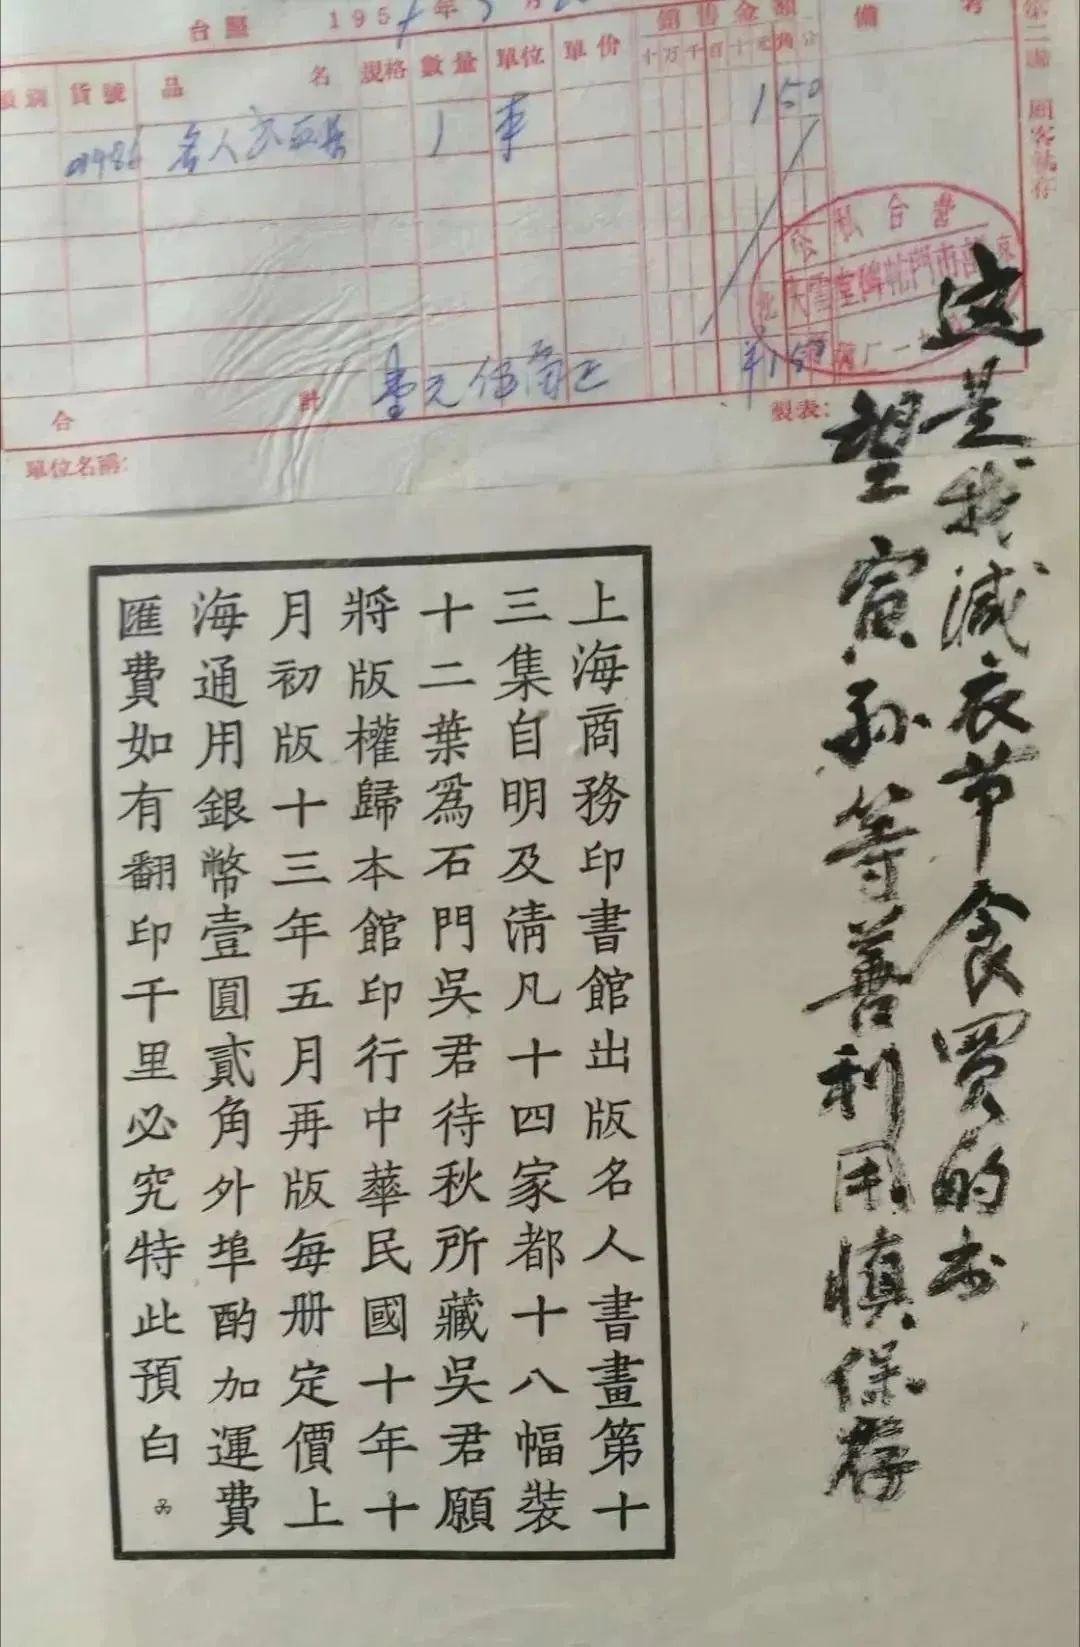 台照 195 年 月
銷售金額
備考
類別 貨號 品名 規格 數量 單位 單价 十万千百十元角分
名人 1 150
合計 壹元伍角正 ¥150
單位名稱:
製表:
公私合營
第二聯 顧客執存
这是我减衣节食买的书
望寅孙等善利用慎保存
上海商務印書館出版名人書畫第十
三集自明及淸凡十四家都十八幅裝
十二葉爲石門吳君待秋所藏吳君願
將版權歸本館印行中華民國十年十
月初版十三年五月再版每册定價上
海通用銀幣壹圓貳角外埠酌加運費
匯費如有翻印千里必究特此預白